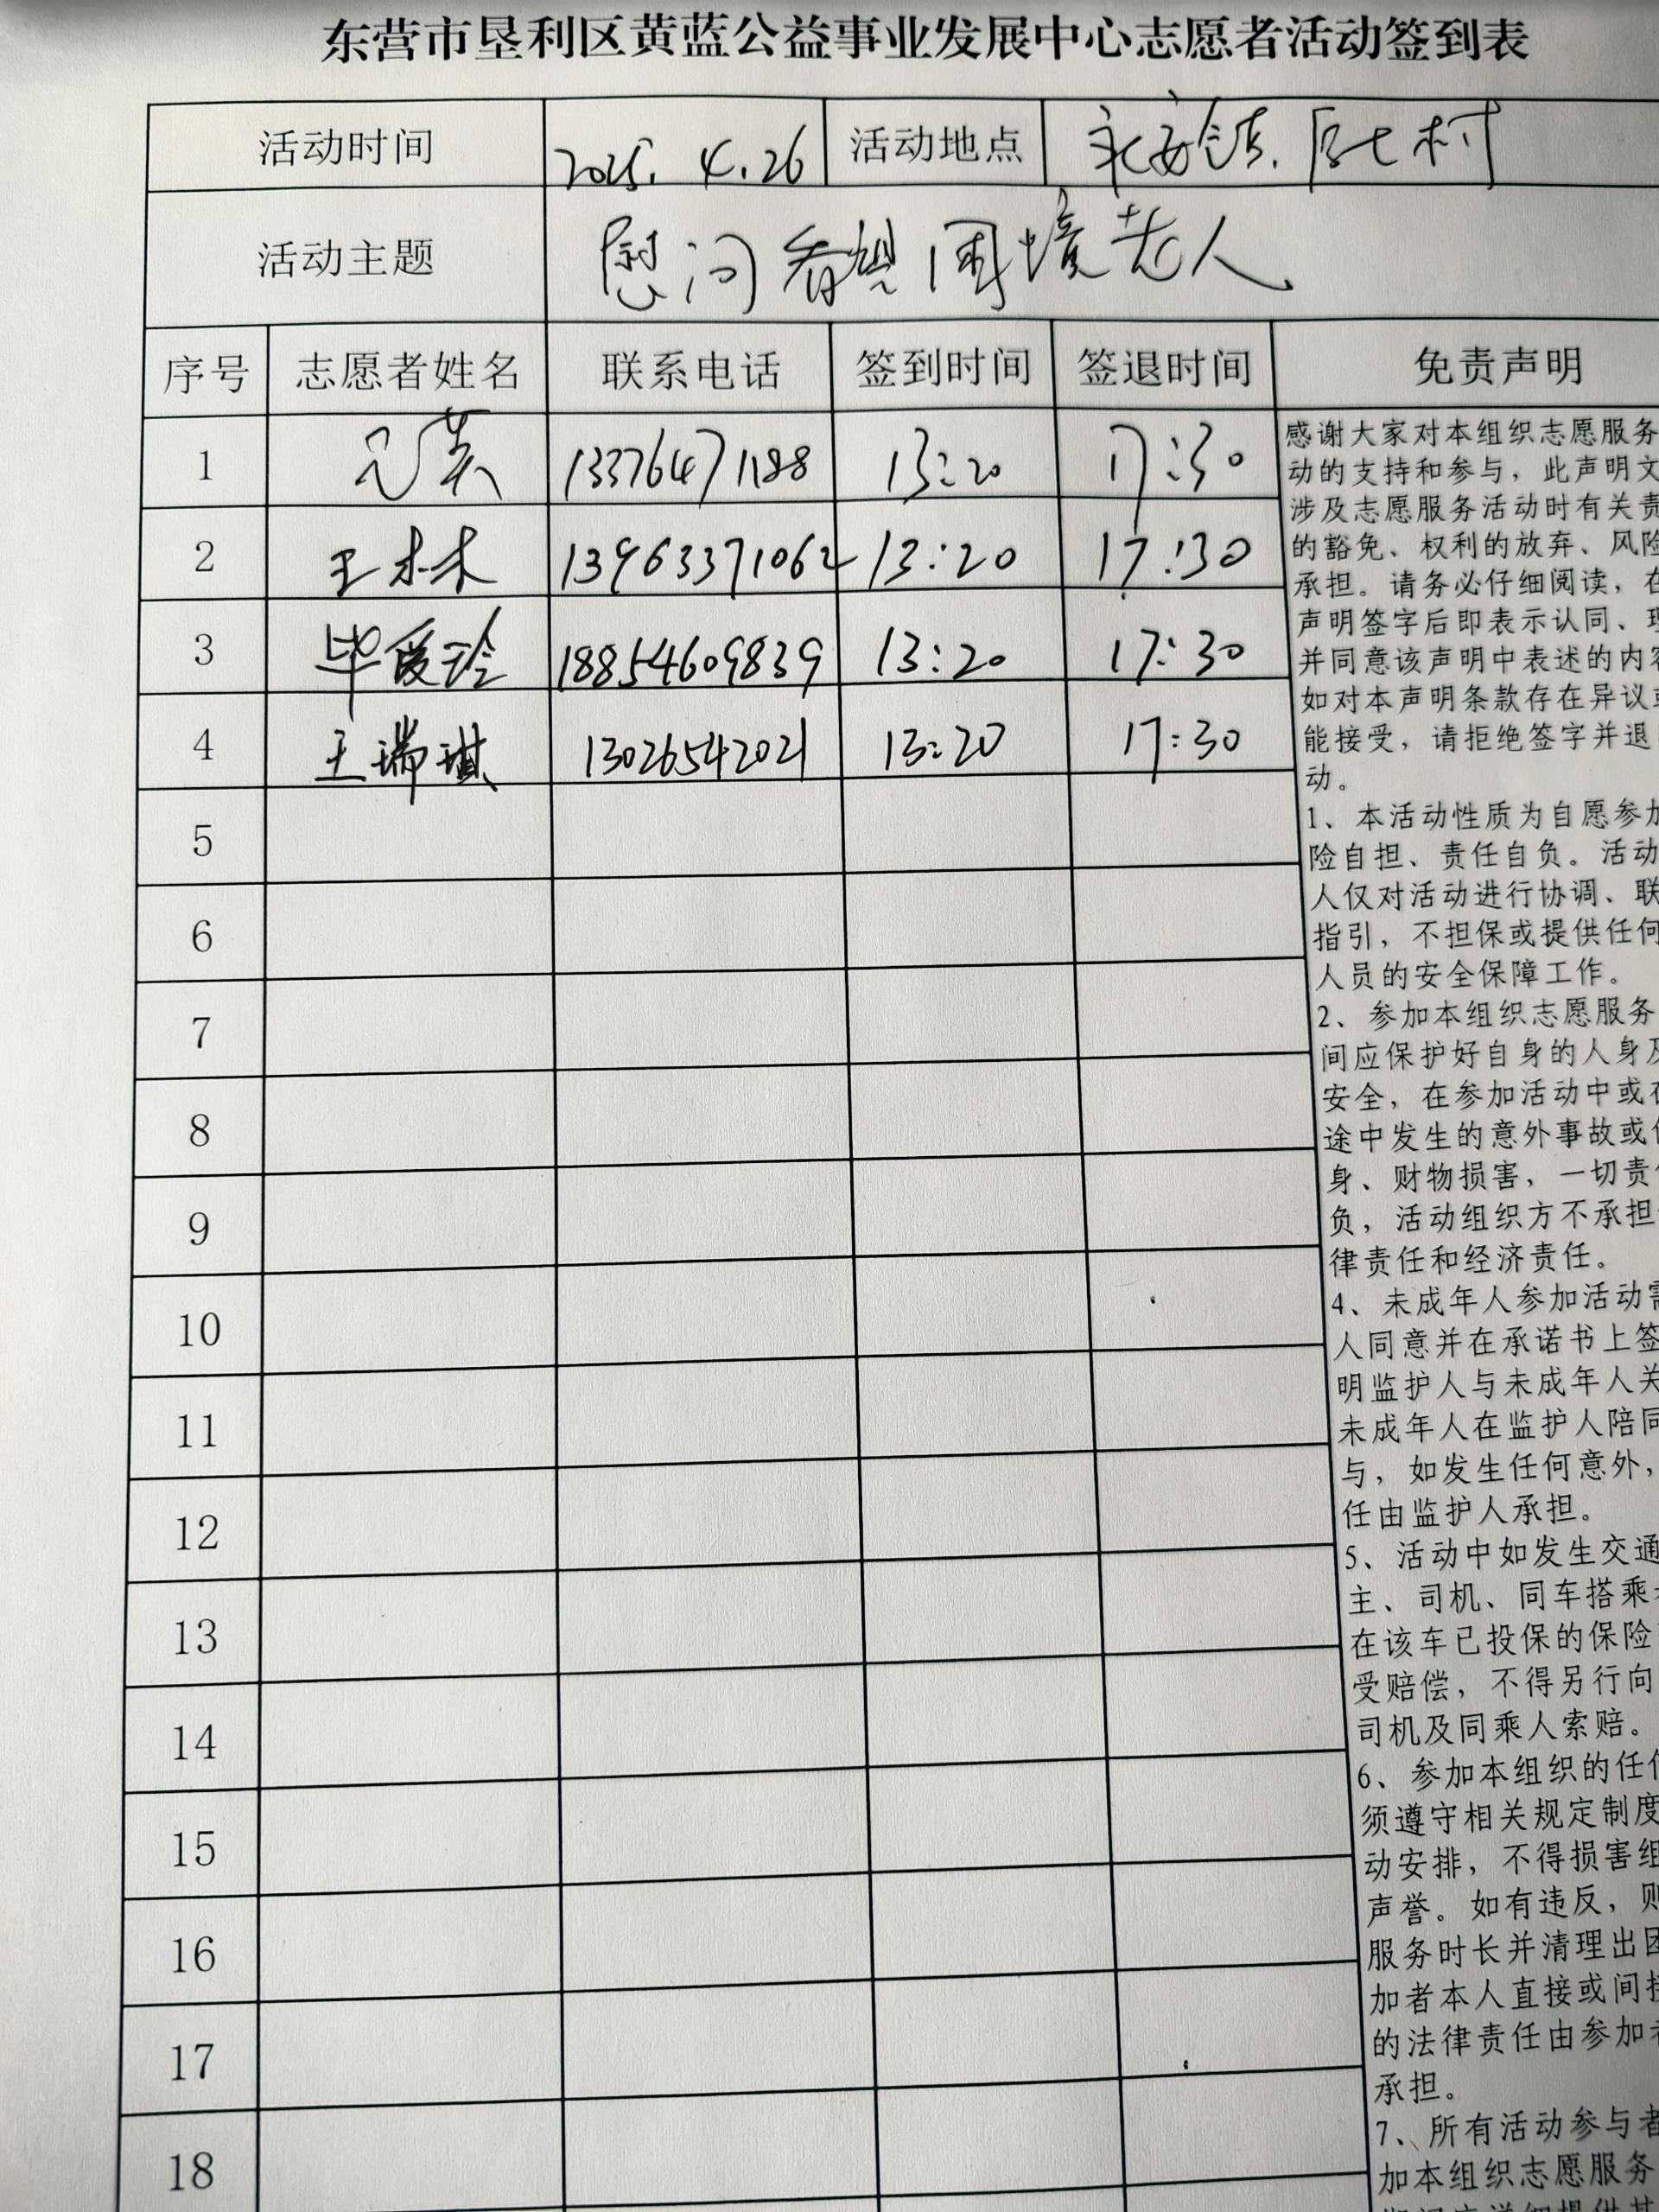 东营市垦利区黄蓝公益事业发展中心志愿者活动签到表
活动时间 2025. 4.26 活动地点 永安镇. 后七村
活动主题 慰问看望困境老人
序号 志愿者姓名 联系电话 签到时间 签退时间 免责声明
1 13376471188 13:20 17:30
2 王木木 13963371062 13:20 17:30
3 毕爱玲 18854609839 13:20 17:30
4 王瑞琪 13026542021 13:20 17:30
5
6
7
8
9
10
11
12
13
14
15
16
17
18
感谢大家对本组织志愿服务
动的支持和参与，此声明文
涉及志愿服务活动时有关责
的豁免、权利的放弃、风险
承担。请务必仔细阅读，在
声明签字后即表示认同、理
并同意该声明中表述的内容
如对本声明条款存在异议或
能接受，请拒绝签字并退
动。
1、本活动性质为自愿参加
险自担、责任自负。活动
人仅对活动进行协调、联
指引，不担保或提供任何
人员的安全保障工作。
2、参加本组织志愿服务
间应保护好自身的人身及
安全，在参加活动中或在
途中发生的意外事故或
身、财物损害，一切责
负，活动组织方不承担
律责任和经济责任。
4、未成年人参加活动需
人同意并在承诺书上签
明监护人与未成年人关
未成年人在监护人陪同
与，如发生任何意外，
任由监护人承担。
5、活动中如发生交通
主、司机、同车搭乘
在该车已投保的保险
受赔偿，不得另行向
司机及同乘人索赔。
6、参加本组织的任
须遵守相关规定制度
动安排，不得损害组
声誉。如有违反，则
服务时长并清理出团
加者本人直接或间接
的法律责任由参加者
承担。
7、所有活动参与者
加本组织志愿服务